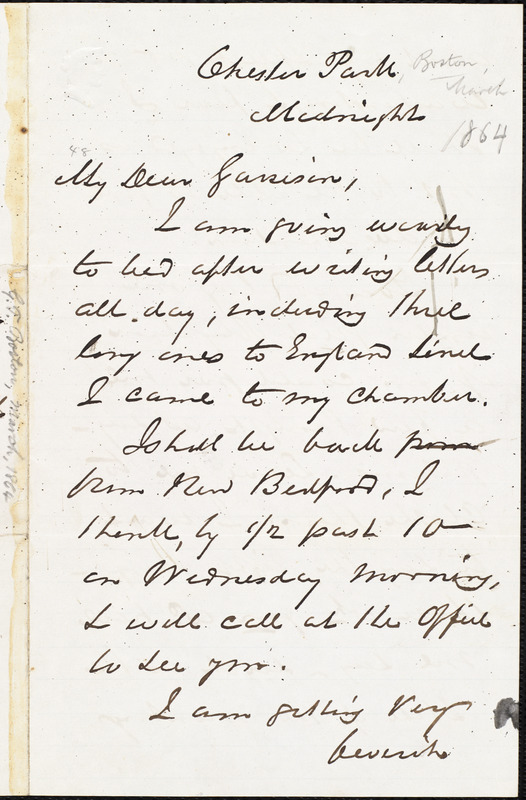 Chester Park, Boston,
March
Midnight
1864
48
My Dear Garrison,
I am going wearily
to bed after writing letters
all day, including three
long ones to England since
I came to my chamber.
I shall be back from
from New Bedford, I
think, by 1/2 past 10
on Wednesday morning,
& will call at the Office
to see you.
I am getting very
Boston, March, 186